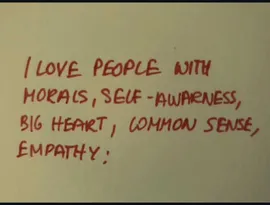 I LOVE PEOPLE WITH
MORALS, SELF-AWARNESS,
BIG HEART, COMMON SENSE,
EMPATHY: